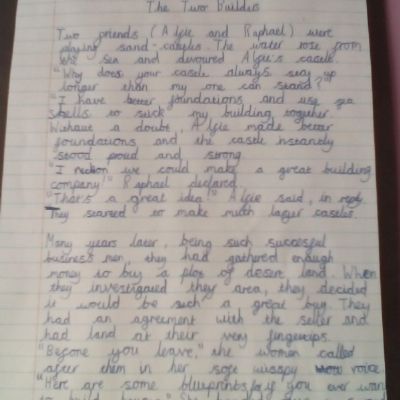 The Two Builders
Two friends (Alfie and Raphael) were
playing sand-castles. The water rose from
the sea and devoured Alfie's castle.
"Why does your castle always stay up
longer than my one can stand?"
"I have better foundations and use sea
shells to stick my building together.
Without a doubt, Alfie made better
foundations and the castle instantly
stood proud and strong.
"I reckon we could make a great building
company!" Raphael declared.
"That's a great idea!" Alfie said, in reply.
They started to make much larger castles.
Many years later, being such succesful
business men, they had gathered enough
money to buy a plot of desert land. When
they investigated they area, they decided
it would be such a great buy. They
had an agreement with the seller and
had land at their very fingertips.
"Before you leave," the women called
after them in her soft wispy voice
"Here are some blueprints for if you ever want
to build